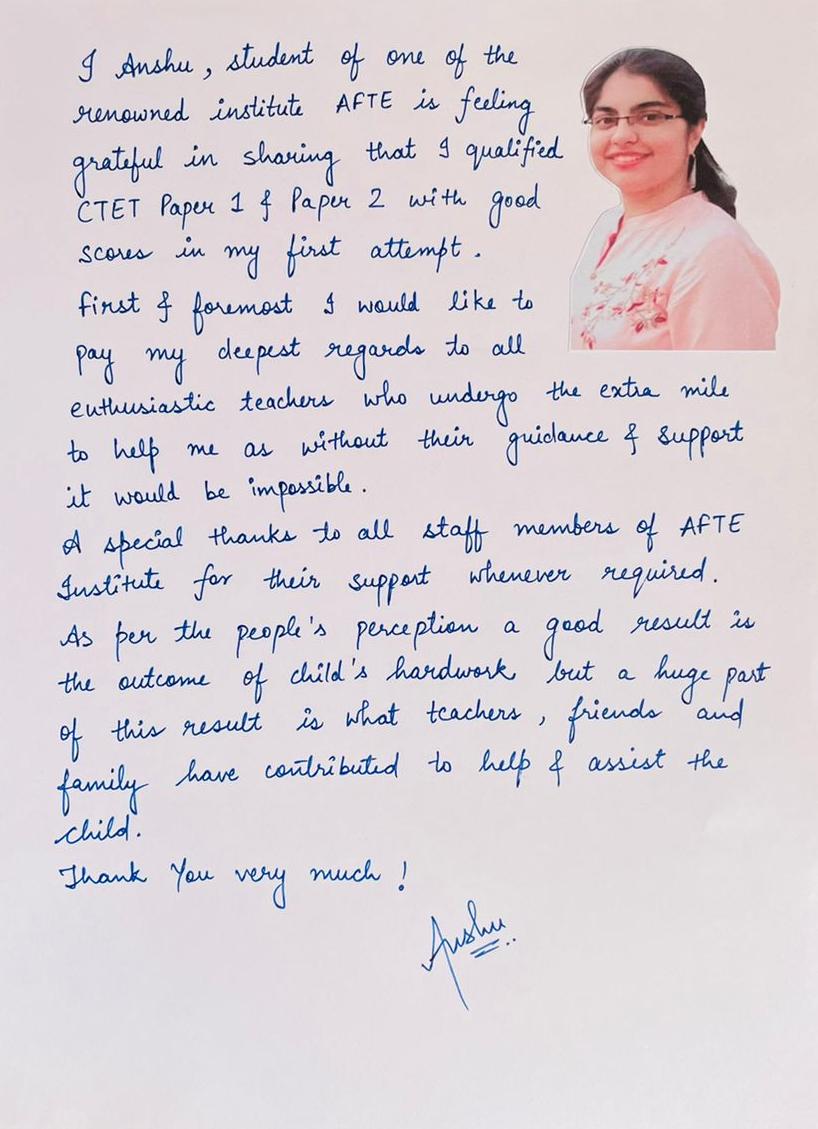 I Anshu, student of one of the
renowned institute AFTE is feeling
grateful in sharing that I qualified
CTET Paper 1 & Paper 2 with good
scores in my first attempt.
first & foremost I would like to
pay my deepest regards to all
enthusiastic teachers who undergo the extra mile
to help me as without their guidance & support
it would be impossible.
A special thanks to all staff members of AFTE
Institute for their support whenever required.
As per the people's perception a good result is
the outcome of child's hardwork but a huge part
of this result is what teachers, friends and
family have contributed to help & assist the
child.
Thank You very much!
Anshu